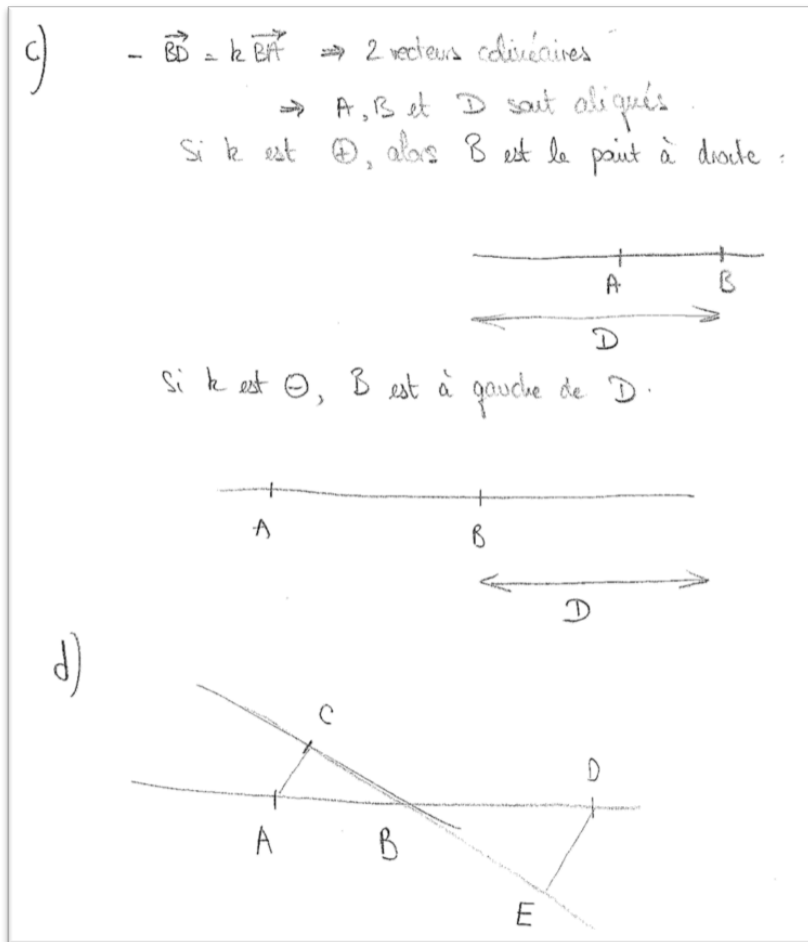 c) - BD = k BA ⇒ 2 vecteurs colinéaires
⇒ A, B et D sont aliqués.
Si k est ⊕, alors B est le point à droite :
A B
D
Si k est ⊖, B est à gauche de D.
A B
D
d)
C
D
A B
E